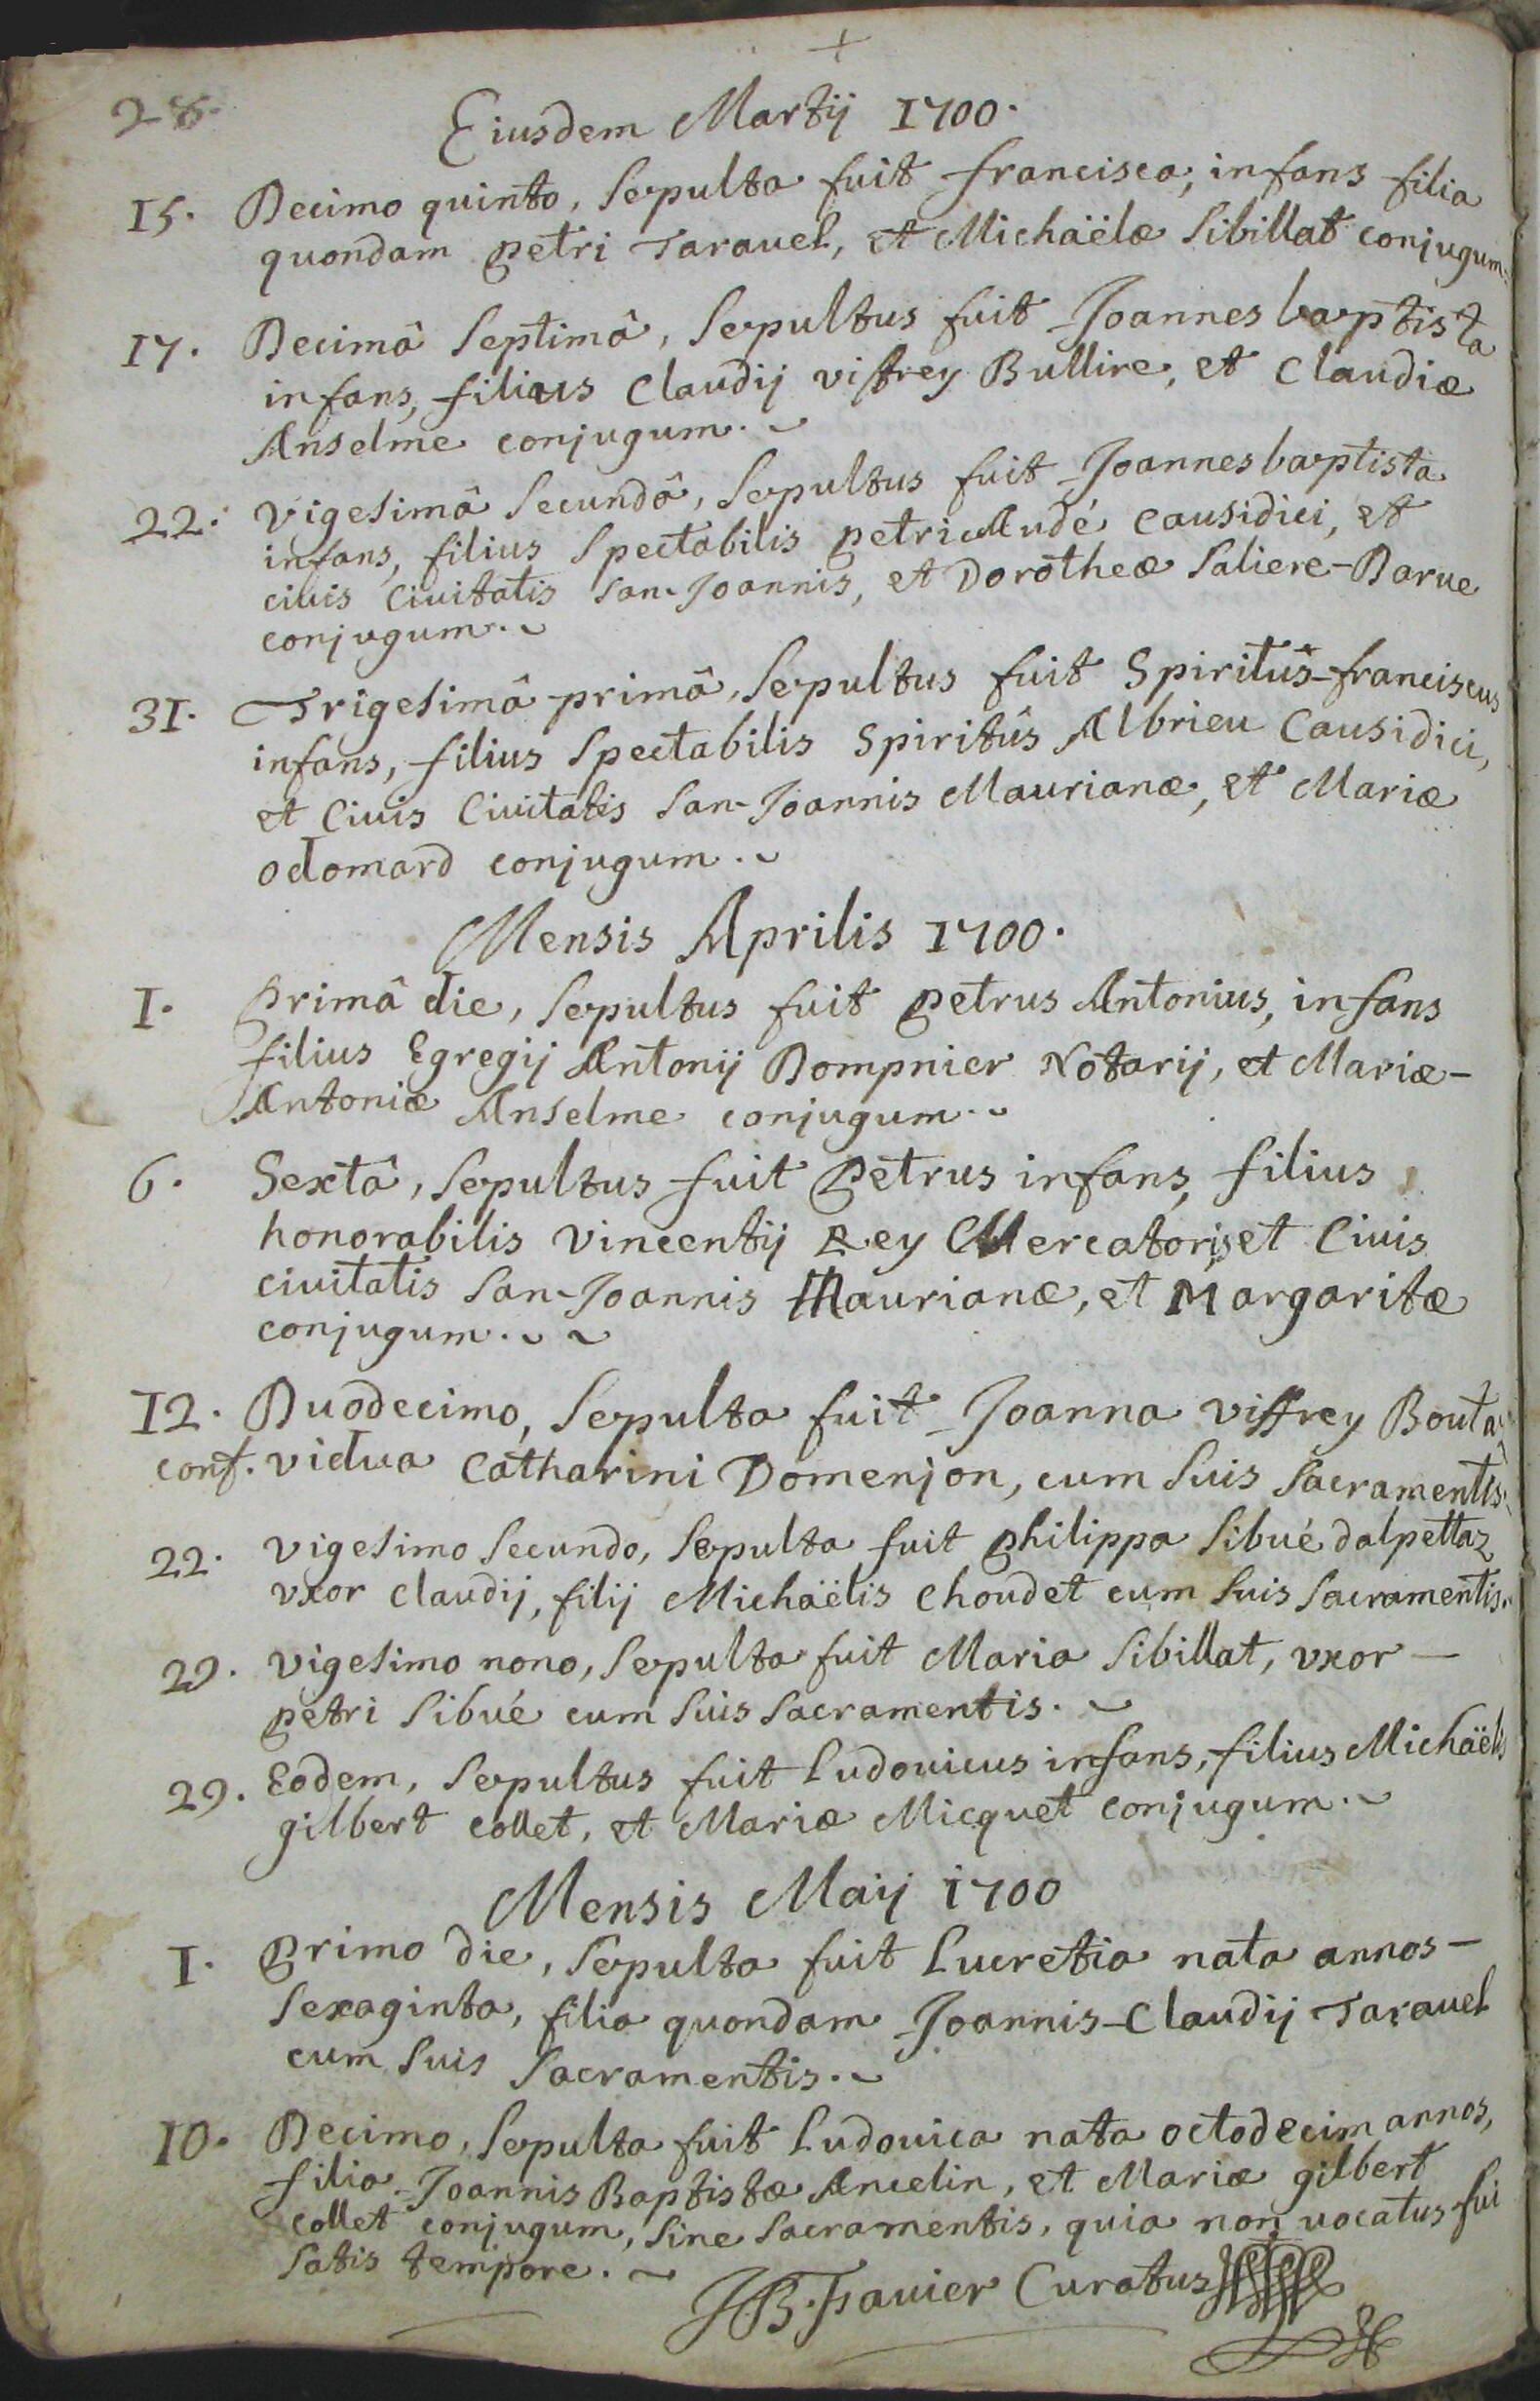 28.
Eiusdem Martij 1700.
15. Decimo quinto, sepulta fuit francisca, infans filia
quondam petri Tarauel, et Michaëlæ Sibillat conjugum.
17. Decimâ septimâ, sepultus fuit Joannes baptista
infans, filius Claudij viffrey Bullire, et Claudiæ
Anselme conjugum.
22. vigesimâ secundâ, sepultus fuit Joannes baptista
infans, filius spectabilis petri Audé causidici, et
ciuis ciuitatis san-Joannis, et Dorotheæ Saliere-Darue
conjugum.
31. Trigesimâ primâ, sepultus fuit Spiritûs-franciscus
infans, filius spectabilis Spiritûs Albrieu Causidici,
et Ciuis Ciuitatis san-Joannis Maurianæ, et Mariæ
odomard conjugum.
Mensis Aprilis 1700.
1. Primâ die, sepultus fuit petrus Antonius, infans
filius Egregij Antonij Dompnier Notarij, et Mariæ-
Antoniæ Anselme conjugum.
6. Sextâ, sepultus fuit Petrus infans, filius
honorabilis vincentij Rey Mercatoris, et Ciuis
ciuitatis san-Joannis Maurianæ, et Margaritæ
conjugum.
12. Duodecimo, sepulta fuit Joanna viffrey
conf. vidua Catharini Domenjon, cum suis sacramentis.
22. vigesimo secundo, sepulta fuit philippa Sibué dalpettaz
vxor Claudij, filij Michaëlis Choudet cum suis sacramentis.
29. vigesimo nono, sepulta fuit Maria Sibillat, vxor -
petri Sibué cum suis sacramentis.
29. Eodem, sepultus fuit Ludouicus infans, filius Michaëlis
gilbert collet, et Mariæ Micquet conjugum.
Mensis Maij 1700
1. Primo die, sepulta fuit Lucretia nata annos -
sexaginta, filia quondam Joannis-Claudij Tarauel
cum suis sacramentis.
10. Decimo, sepulta fuit Ludouica nata octodecim annos,
filia Joannis Baptistæ Ancelin, et Mariæ gilbert
collet conjugum, sine sacramentis, quia non uocatus fui
satis tempore.
JB. Curatus